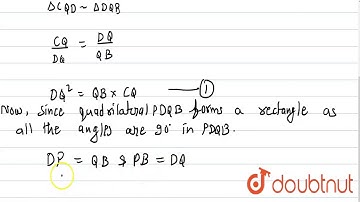 ΔCQD ~ ΔDQB
CQ/DQ = DQ/QB
DQ² = QB × CQ —— ①
Now, since quadrilateral PDQB forms a rectangle as
all the angles are 90° in PDQB.
DP = QB & PB = DQ
doubtnut